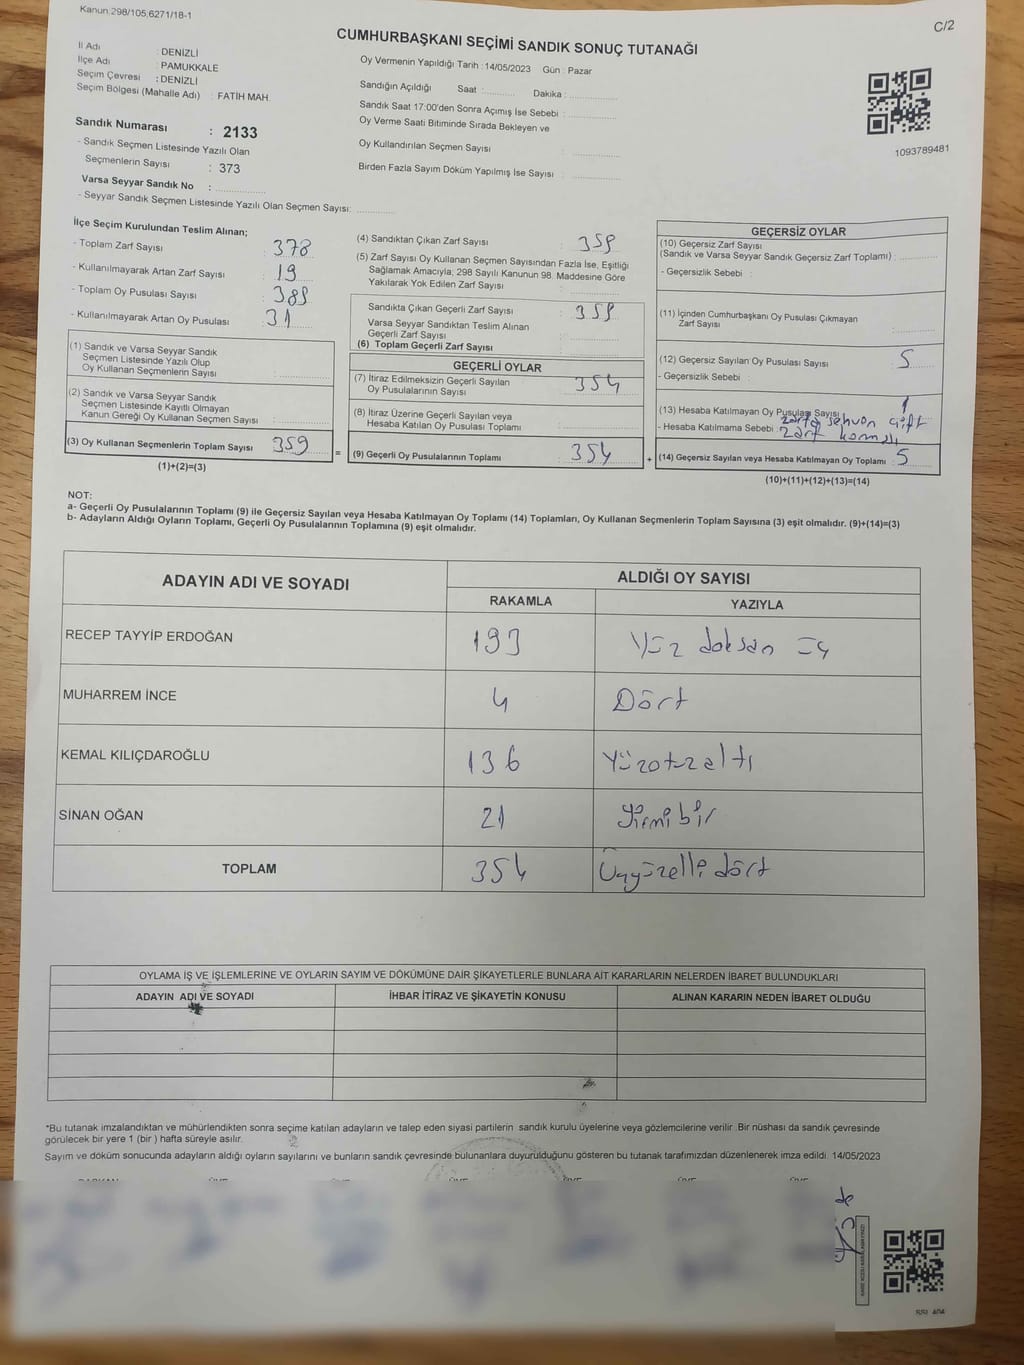 Kanun:298/105;6271/18-1
C/2
CUMHURBAŞKANI SEÇİMİ SANDIK SONUÇ TUTANAĞI
İl Adı : DENİZLİ
İlçe Adı : PAMUKKALE
Seçim Çevresi : DENİZLİ
Seçim Bölgesi (Mahalle Adı) : FATİH MAH.
Sandık Numarası : 2133
- Sandık Seçmen Listesinde Yazılı Olan
Seçmenlerin Sayısı : 373
Varsa Seyyar Sandık No :
- Seyyar Sandık Seçmen Listesinde Yazılı Olan Seçmen Sayısı:
Oy Vermenin Yapıldığı Tarih : 14/05/2023 Gün : Pazar
Sandığın Açıldığı Saat : Dakika :
Sandık Saat 17:00'den Sonra Açımış İse Sebebi :
Oy Verme Saati Bitiminde Sırada Bekleyen ve
Oy Kullandırılan Seçmen Sayısı :
Birden Fazla Sayım Döküm Yapılmış İse Sayısı :
1093789481
İlçe Seçim Kurulundan Teslim Alınan;
- Toplam Zarf Sayısı : 378
- Kullanılmayarak Artan Zarf Sayısı : 19
- Toplam Oy Pusulası Sayısı : 389
- Kullanılmayarak Artan Oy Pusulası : 31
(1) Sandık ve Varsa Seyyar Sandık
Seçmen Listesinde Yazılı Olup
Oy Kullanan Seçmenlerin Sayısı :
(2) Sandık ve Varsa Seyyar Sandık
Seçmen Listesinde Kayıtlı Olmayan
Kanun Gereği Oy Kullanan Seçmen Sayısı :
(3) Oy Kullanan Seçmenlerin Toplam Sayısı : 359
(1)+(2)=(3)
=
(4) Sandıktan Çıkan Zarf Sayısı : 359
(5) Zarf Sayısı Oy Kullanan Seçmen Sayısından Fazla İse, Eşitliği
Sağlamak Amacıyla; 298 Sayılı Kanunun 98. Maddesine Göre
Yakılarak Yok Edilen Zarf Sayısı :
Sandıkta Çıkan Geçerli Zarf Sayısı : 359
Varsa Seyyar Sandıktan Teslim Alınan
Geçerli Zarf Sayısı :
(6) Toplam Geçerli Zarf Sayısı :
GEÇERLİ OYLAR
(7) İtiraz Edilmeksizin Geçerli Sayılan
Oy Pusulalarının Sayısı : 354
(8) İtiraz Üzerine Geçerli Sayılan veya
Hesaba Katılan Oy Pusulası Toplamı :
(9) Geçerli Oy Pusulalarının Toplamı : 354
+
GEÇERSİZ OYLAR
(10) Geçersiz Zarf Sayısı
(Sandık ve Varsa Seyyar Sandık Geçersiz Zarf Toplamı) :
- Geçersizlik Sebebi :
(11) İçinden Cumhurbaşkanı Oy Pusulası Çıkmayan
Zarf Sayısı :
(12) Geçersiz Sayılan Oy Pusulası Sayısı : 5
- Geçersizlik Sebebi :
(13) Hesaba Katılmayan Oy Pusulası Sayısı : 1
- Hesaba Katılmama Sebebi : zarfa sehven çift
zarf
(14) Geçersiz Sayılan veya Hesaba Katılmayan Oy Toplamı : 5
(10)+(11)+(12)+(13)=(14)
NOT:
a- Geçerli Oy Pusulalarının Toplamı (9) ile Geçersiz Sayılan veya Hesaba Katılmayan Oy Toplamı (14) Toplamları, Oy Kullanan Seçmenlerin Toplam Sayısına (3) eşit olmalıdır. (9)+(14)=(3)
b- Adayların Aldığı Oyların Toplamı, Geçerli Oy Pusulalarının Toplamına (9) eşit olmalıdır.
ADAYIN ADI VE SOYADI ALDIĞI OY SAYISI
RAKAMLA YAZIYLA
RECEP TAYYİP ERDOĞAN 193 Yüz doksan üç
MUHARREM İNCE 4 Dört
KEMAL KILIÇDAROĞLU 136 Yüzotuzaltı
SİNAN OĞAN 21 Yirmibir
TOPLAM 354 Üçyüzelli dört
OYLAMA İŞ VE İŞLEMLERİNE VE OYLARIN SAYIM VE DÖKÜMÜNE DAİR ŞİKAYETLERLE BUNLARA AİT KARARLARIN NELERDEN İBARET BULUNDUKLARI
ADAYIN ADI VE SOYADI İHBAR İTİRAZ VE ŞİKAYETİN KONUSU ALINAN KARARIN NEDEN İBARET OLDUĞU
*Bu tutanak imzalandıktan ve mühürlendikten sonra seçime katılan adayların ve talep eden siyasi partilerin sandık kurulu üyelerine veya gözlemcilerine verilir. Bir nüshası da sandık çevresinde
görülecek bir yere 1 (bir ) hafta süreyle asılır.
Sayım ve döküm sonucunda adayların aldığı oyların sayılarını ve bunların sandık çevresinde bulunanlara duyurulduğunu gösteren bu tutanak tarafımızdan düzenlenerek imza edildi. 14/05/2023